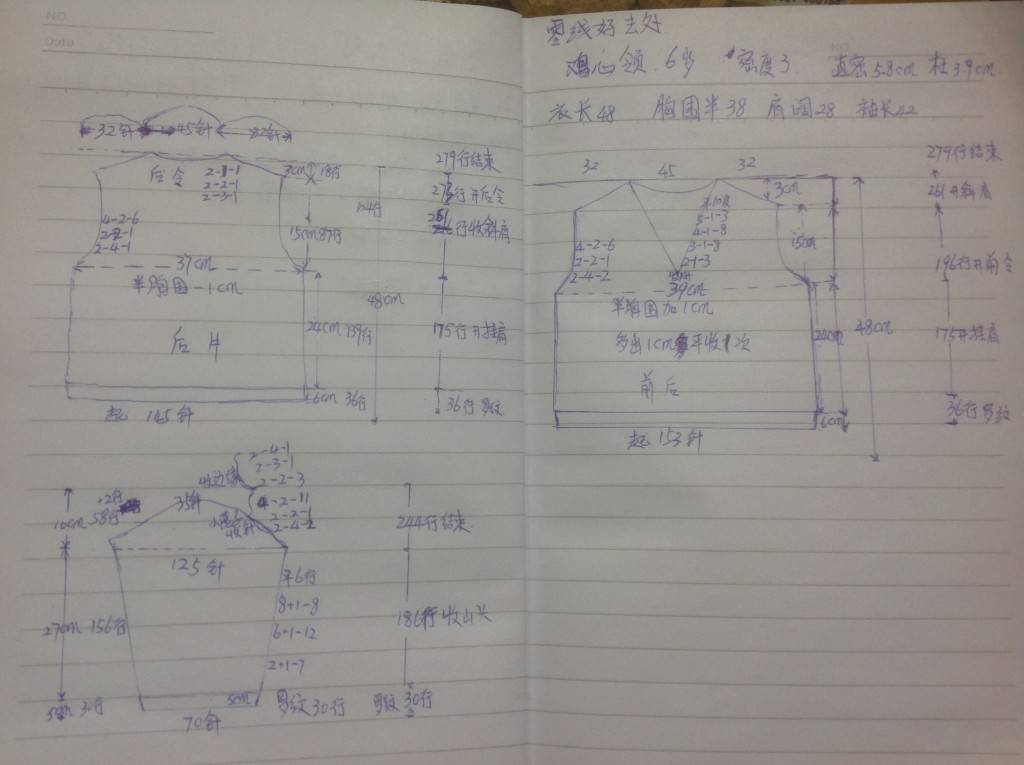 零线好去处
鸡心领 6岁 密度3 直密5.8cm 横3.9cm
衣长48 胸围半38 肩阔28 袖长42
32针 45针 32针
后领
2-1-1
2-2-1
2-3-1
3cm 18行
4-2-6
2-2-1
2-4-1
15cm 87行
104行
37cm
半胸围-1cm
48cm
24cm 139行
后片
6cm 36行
起 145针
279行结束
行开后领
261行收斜肩
175行开挂肩
36行罗纹
32 45 32
3cm
5-1-3
4-1-8
3-1-8
2-1-3
4-2-6
2-2-1
2-4-2
15cm
39cm
半胸围加1cm
多出1cm 平收1次
前后
24cm
48cm
6cm
起 153针
279行结束
261开斜肩
196行开前领
175开挂肩
36行罗纹
2-4-1
2-3-1
2-2-3
4-2-11
2-2-1
2-4-2
收边缘
+2行
58行
10cm
35针
125针
27cm 156行
平6行
8+1-8
6+1-12
2+1-7
5cm
5cm 30行
70针
罗纹30行
244行结束
186行收山头
罗纹30行